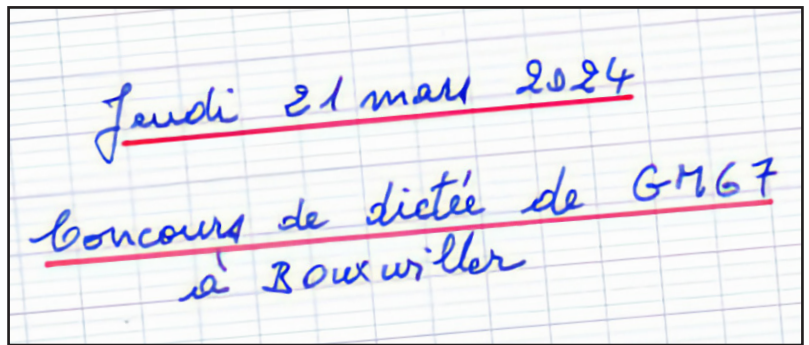 Jeudi 21 mars 2024
Concours de dictée de GMG7
à Bouxwiller